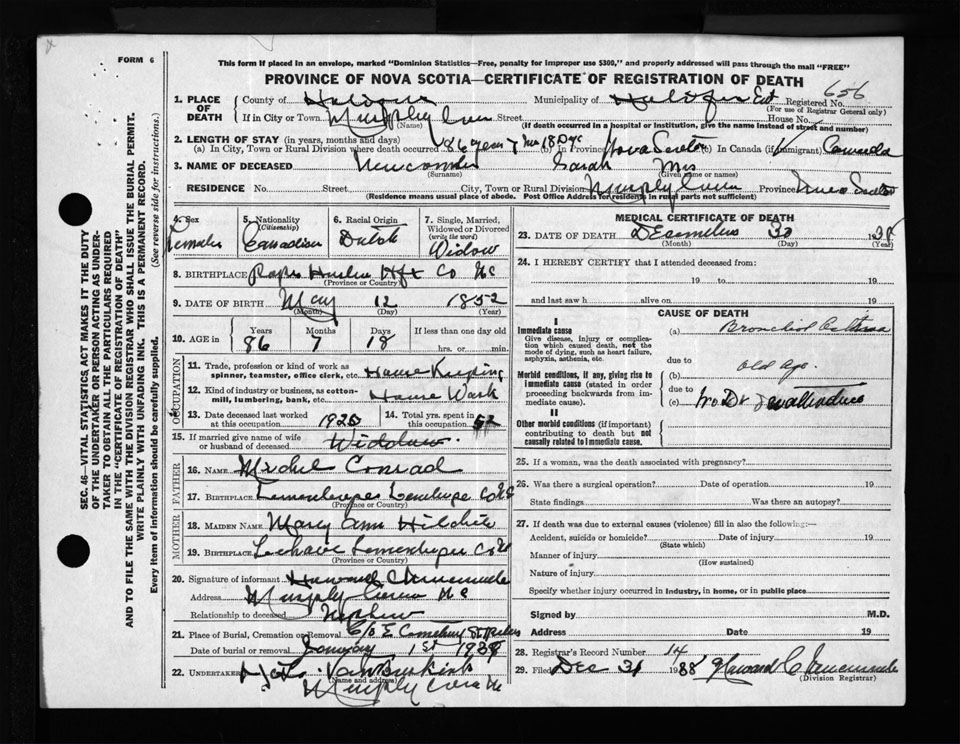 FORM 6
This form if placed in an envelope, marked "Dominion Statistics—Free, penalty for improper use $300," and properly addressed will pass through the mail "FREE"
PROVINCE OF NOVA SCOTIA—CERTIFICATE OF REGISTRATION OF DEATH
656
1. PLACE OF DEATH
County of
Municipality of Registered No.
(For use of Registrar General only)
If in City or Town Murphy Cove Street House No.
(Name) (If death occurred in a hospital or institution, give the name instead of street and number)
2. LENGTH OF STAY (in years, months and days)
(a) In City, Town or Rural Division where death occurred 86 year 7 18 (b) in Province Nova Scotia (c) In Canada (if immigrant) Canada
3. NAME OF DECEASED Sarah Mrs
(Surname) (Given name or names)
RESIDENCE No. Street City, Town or Rural Division Murphy Cove Province Nova Scotia
(Residence means usual place of abode. Post Office Address for residents in rural parts not sufficient)
4. Sex
Female
5. Nationality
(Citizenship)
Canadian
6. Racial Origin
Dutch
7. Single, Married, Widowed or Divorced
(write the word)
Widow
8. BIRTHPLACE Hfx Co
(Province or Country)
9. DATE OF BIRTH May 12 1852
(Month) (Day) (Year)
10. AGE in
Years
86
Months
7
Days
18
If less than one day old
hrs. or min.
OCCUPATION
11. Trade, profession or kind of work as spinner, teamster, office clerk, etc. House Keeping
12. Kind of industry or business, as cotton-mill, lumbering, bank, etc. House Work
13. Date deceased last worked at this occupation 1925
14. Total yrs. spent in this occupation 52
15. If married give name of wife or husband of deceased
FATHER
16. NAME Conrad
17. BIRTHPLACE
(Province or Country)
MOTHER
18. MAIDEN NAME Mary Ann
19. BIRTHPLACE
(Province or Country)
20. Signature of informant Howard
Address Murphy Cove
Relationship to deceased Nephew
21. Place of Burial, Cremation or Removal C/o E Cemetery
Date of burial or removal January 1st 1939
22. UNDERTAKER
(Name and address)
Murphy Cove
MEDICAL CERTIFICATE OF DEATH
23. DATE OF DEATH 30 1938
(Month) (Day) (Year)
24. I HEREBY CERTIFY that I attended deceased from:
19 to 19
and last saw h alive on 19
CAUSE OF DEATH
I
Immediate cause
Give disease, injury or complication which caused death, not the mode of dying, such as heart failure, asphyxia, asthenia, etc.
(a) Bronchial
due to
Morbid conditions, if any, giving rise to immediate cause (stated in order proceeding backwards from immediate cause).
(b) old age.
due to
(c) No Dr
II
Other morbid conditions (if important) contributing to death but not causally related to immediate cause.
25. If a woman, was the death associated with pregnancy?
26. Was there a surgical operation? Date of operation 19
State findings Was there an autopsy?
27. If death was due to external causes (violence) fill in also the following:—
Accident, suicide or homicide? Date of injury 19
(State which)
Manner of injury
(How sustained)
Nature of injury
Specify whether injury occurred in Industry, in home, or in public place
Signed by M.D.
Address Date 19
28. Registrar's Record Number 14
29. Filed Dec 31 1938 Howard
(Division Registrar)
SEC. 46—VITAL STATISTICS ACT MAKES IT THE DUTY
OF THE UNDERTAKER OR PERSON ACTING AS UNDER-
TAKER TO OBTAIN ALL THE PARTICULARS REQUIRED
IN THE "CERTIFICATE OF REGISTRATION OF DEATH"
AND TO FILE THE SAME WITH THE DIVISION REGISTRAR WHO SHALL ISSUE THE BURIAL PERMIT.
WRITE PLAINLY WITH UNFADING INK. THIS IS A PERMANENT RECORD.
Every item of information should be carefully supplied. (See reverse side for instructions).